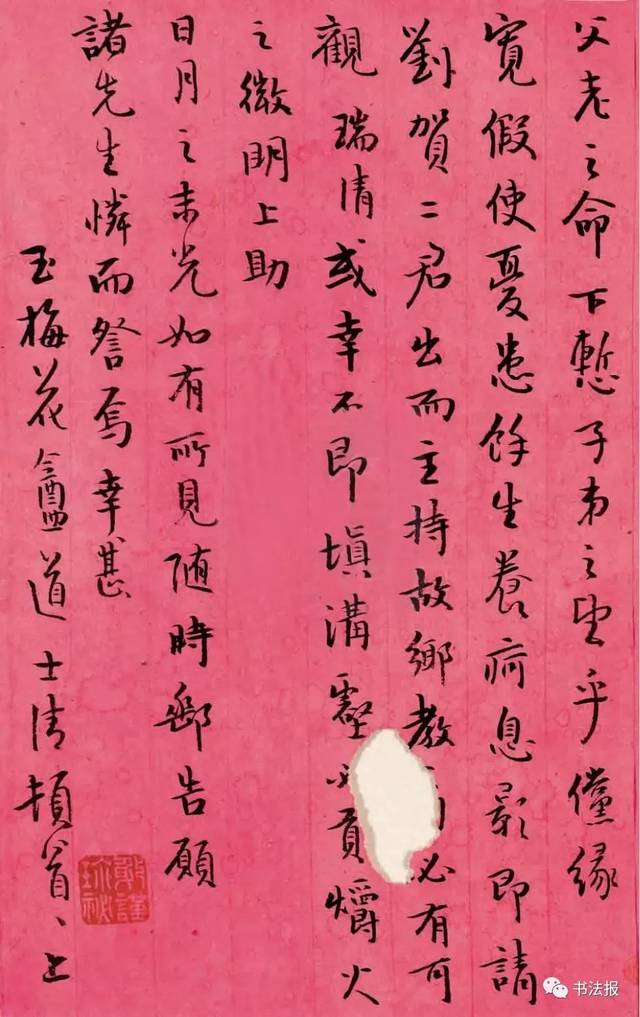 父老之命下慙子弟之望乎儻緣
寬假使憂患餘生養痾息影即請
劉賀二君出而主持故鄉教必有可
觀瑞清或幸不即填溝壑必貢爝火
之微明上助
日月之末光如有所見隨時郵告願
諸先生憐而詧焉幸甚
玉梅花盦道士清頓首〻上
书法报